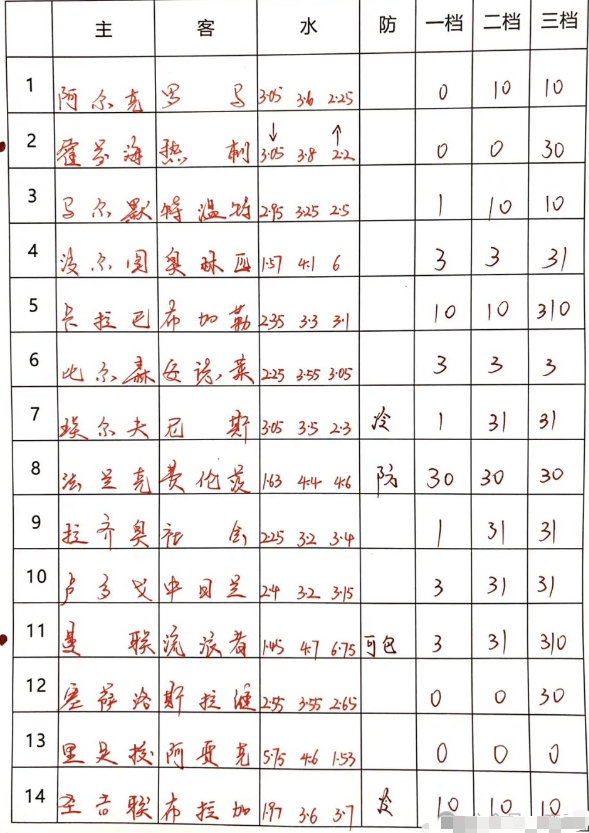 主 客 水 防 一档 二档 三档
1 阿尔克 罗马 3.05 3.6 2.25 0 10 10
↓ ↑
2 霍芬海 热刺 3.05 3.8 2.2 0 0 30
3 马尔默 特温特 2.95 3.25 2.5 1 10 10
4 波尔图 奥林匹 1.57 4.1 6 3 3 31
5 卡拉巴 布加勒 2.35 3.3 3.1 10 10 310
6 比尔森 安德莱 2.25 3.55 3.05 3 3 3
7 埃尔夫 尼斯 3.05 3.5 2.3 冷 1 31 31
8 法兰克 费伦茨 1.63 4.4 4.6 防 30 30 30
9 拉齐奥 社会 2.25 3.2 3.4 1 31 31
10 卢多戈 中日兰 2.4 3.2 3.15 3 31 31
11 曼联 流浪者 1.45 4.7 6.75 可包 3 31 310
12 塞萨洛 斯拉维 2.55 3.55 2.65 0 0 30
13 里是拉 阿贾克 5.75 4.6 1.53 0 0 0
14 圣吉联 布拉加 1.97 3.6 3.7 冷 10 10 10